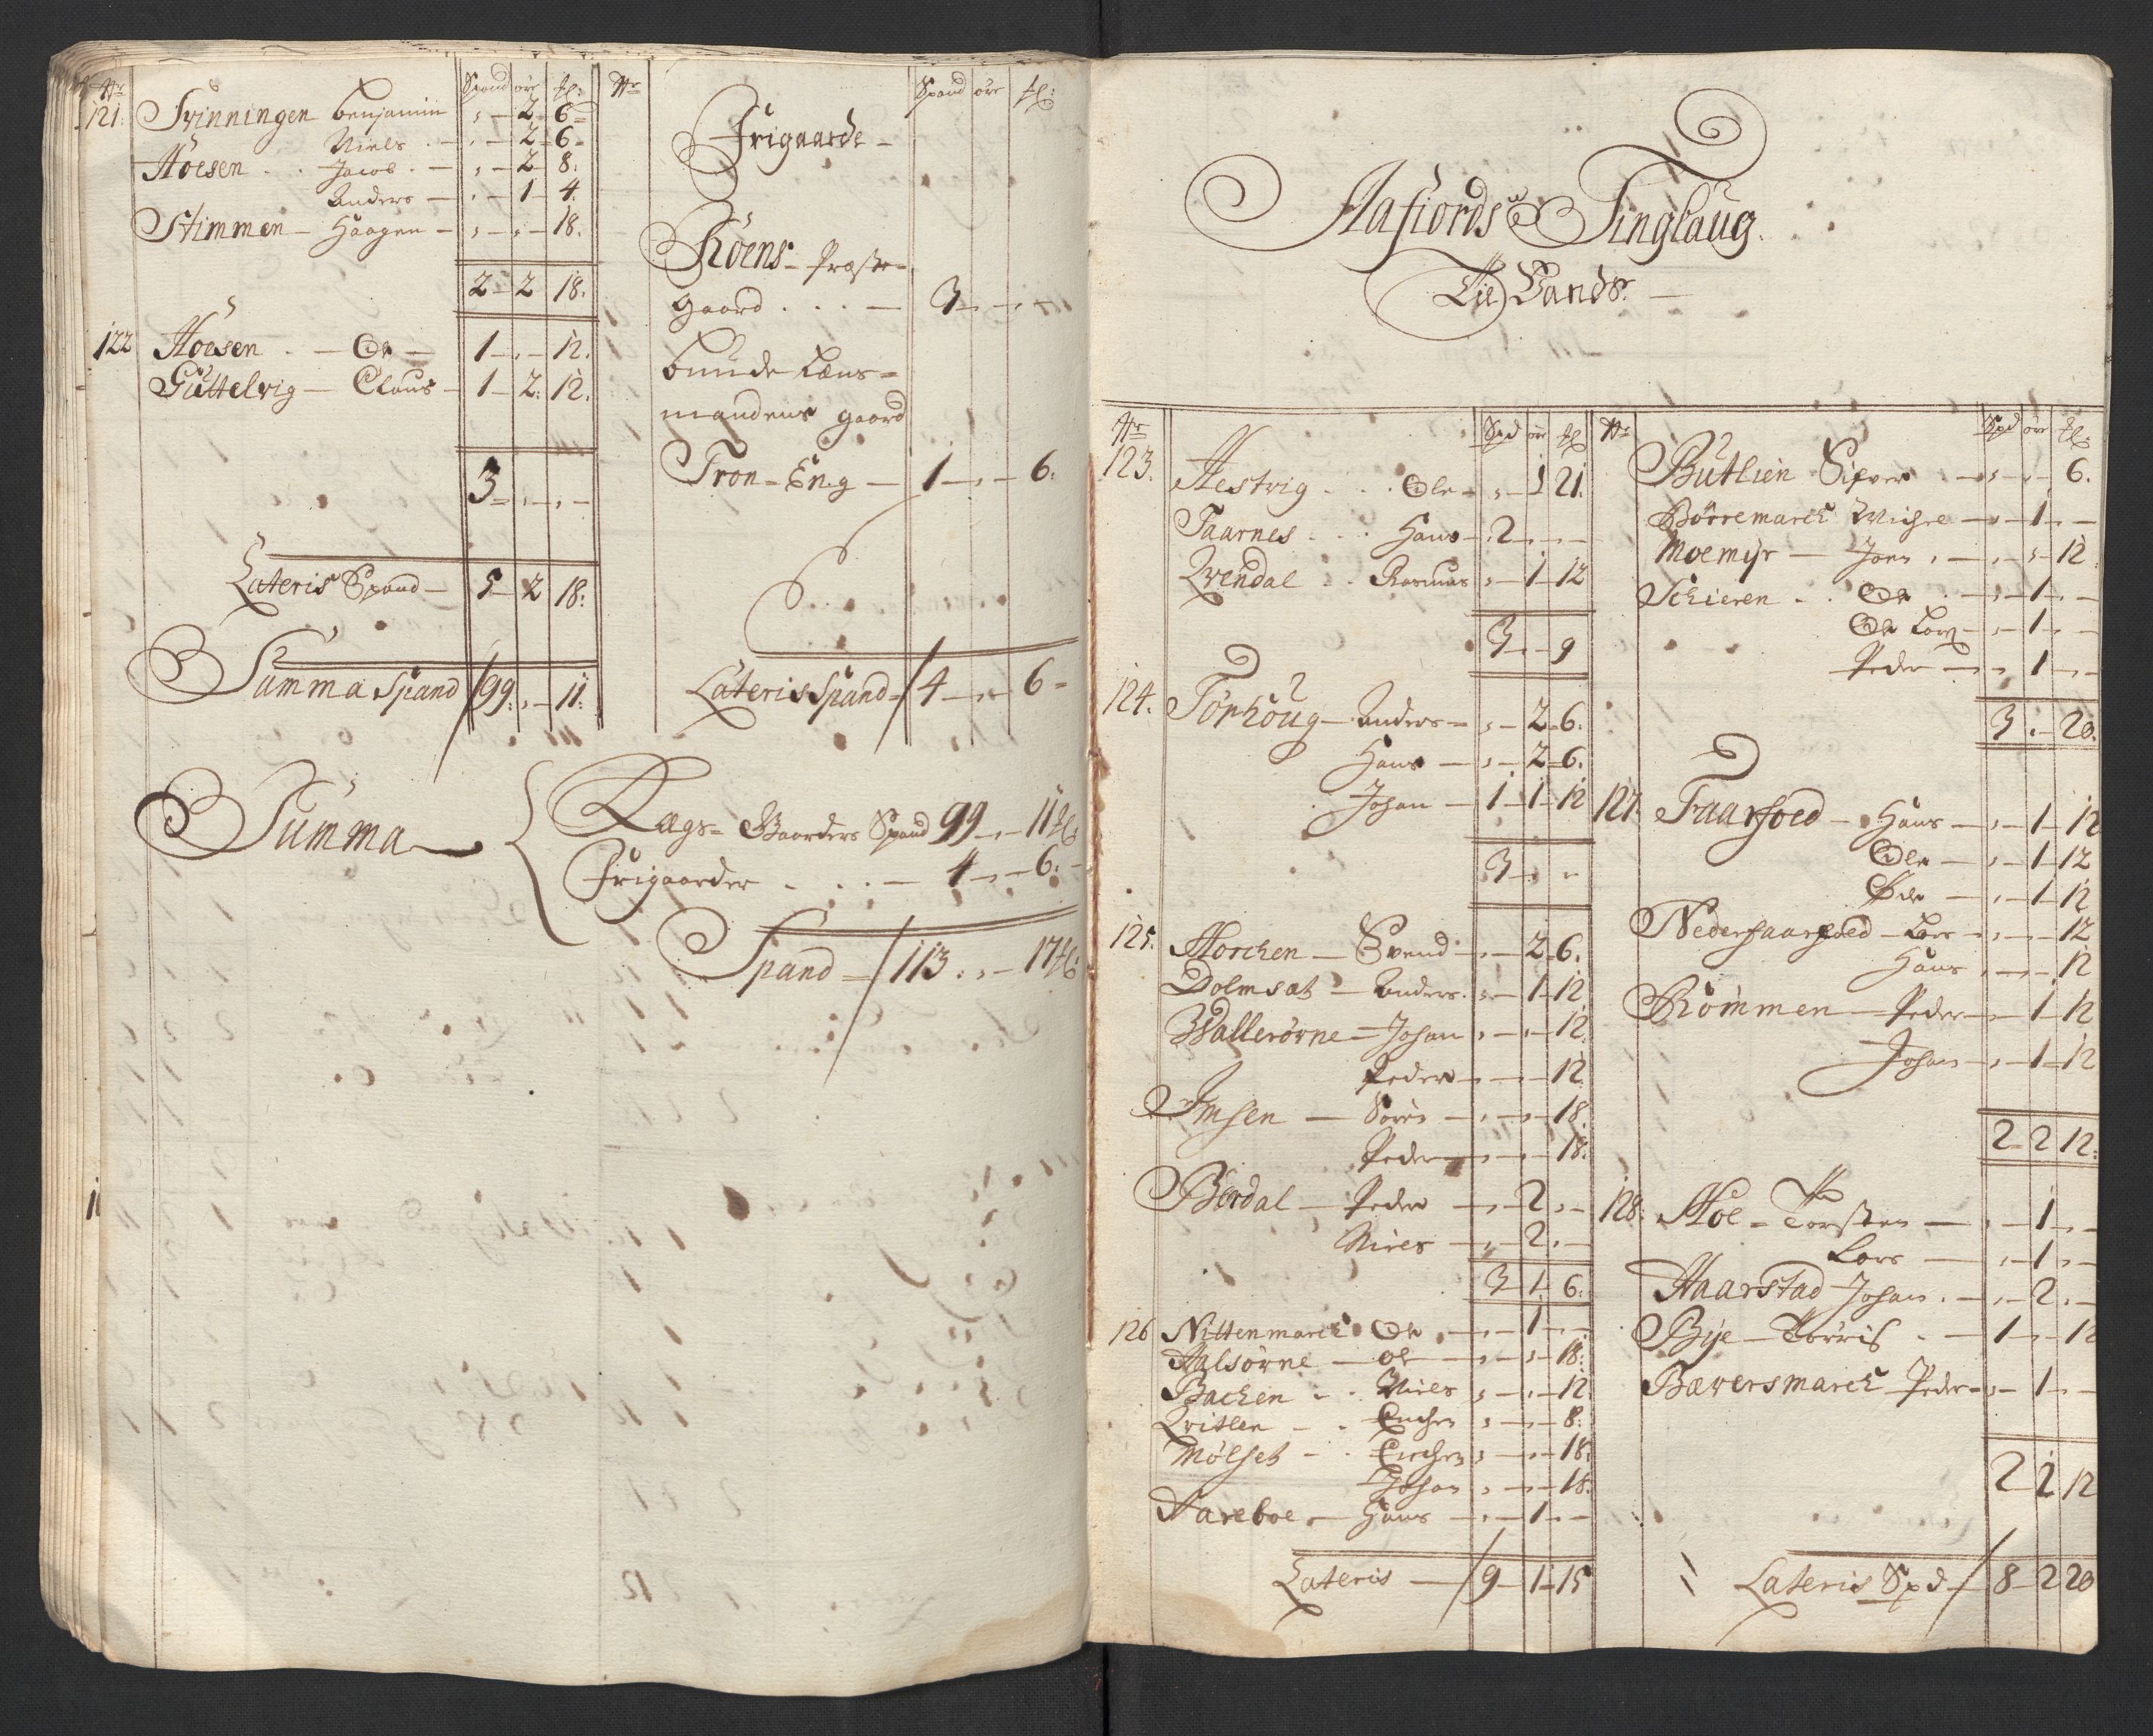 Nr Spand öre Hl:
121: Svinningen benjamin , – 2 – 6 –
Niels . – , – 2 – 6 –
Hoesen . . Jacob . – , – 2 – 8:
Anders – , – 1 – 4.
Stimmen – Haagen – , – , – 18.
2 – 2 18.
122 Hoesen . – Ole – 1 – , – 12.
Guttelvig – Claus – 1 – 2. 12.
3 – , – , –
Lateris Spand – 5 – 2 18:
Summa Spand / 99: , – 11:
Nr Spand öre Hl:
Frigaarde –
Röens – Præste =
gaard . . . – 9 – , – , –
bunde Læns =
mandens gaard
Tron – Eng – 1 – , – 6:
Lateris Spand – / 4 – , – 6 –
Summa
Lægs = Gaarders Spand 99 – , – 11 Hl:
Frigaarder . . . – 4 – , – 6: –
Spand – / 113 . , – 17 Hl:
Aafiords Tinglaug.
Til Lands. –
Nr Spd öre Hl
123. Hestvig . . . Ole – , – 1 21.
Taarnes . . . Hans – 2 – , – , –
Qvendal . . Rasmus , – 1 – 12
3 – , – 9
124. Törhöug – Anders – , – 2 – 6.
Hans – , – 2 – 6.
Johan – 1 – 1 – 12
3 – , –
125. Morchen – Svend – , – 2 – 6.
Dolmsat – Anders . , – 1 – 12.
Wallerörne – Johan , – , – 12.
Peder – , – , – 12.
Imsen – Sören – , – , – 18.
Peder – , – , – 18.
Berdal – Peder – , – 2 , –
Niels – , – 2 . –
3 1. 6.
126 Nittenmarch Ole , – , – 1 – , –
Aalsörne – ole – , – , – 18:
Bachen – . Niels , – , – 12
Qvitlen – . Erichen , – , – 8:
Mölset – . Erichen , – , – 18.
Johan , – , – 18.
Hareboe – Hans – , – 1 – , –
Lateris – / 9 – 1 – 15
Nr Spd öre Hl:
Butlien Sifver . – , – , – 6.
Börremarch Michel – , – 1 – , –
Moemyr – Joen . – , – , – 12
Schieren . . Ole . – , – 1 – , –
Ole Lorz – , – 1 – , –
Peder – , – 1 – , –
3 . – 20.
127. Faarfoed – Hans – , – 1 – 12
Ole – , – 1 – 12
Peder – , – 1 12
Nederfaarfoed – Lars – , – , – 12
Hans , – , – 12
Kömmen – Peder – , – 1 – 12
Johan – , – 1 – 12
2 – 2 12.
128. Hoe – Torsten – , – 1 – , –
Lars – , – 1 – , –
Haarstad Johan . – , – 2 . –
Bye – Torris . – 1 – , – 12
Bæversmarch Peder – , – 1 – , –
2 2 12
Lateris Spd – / 8 – 2 20